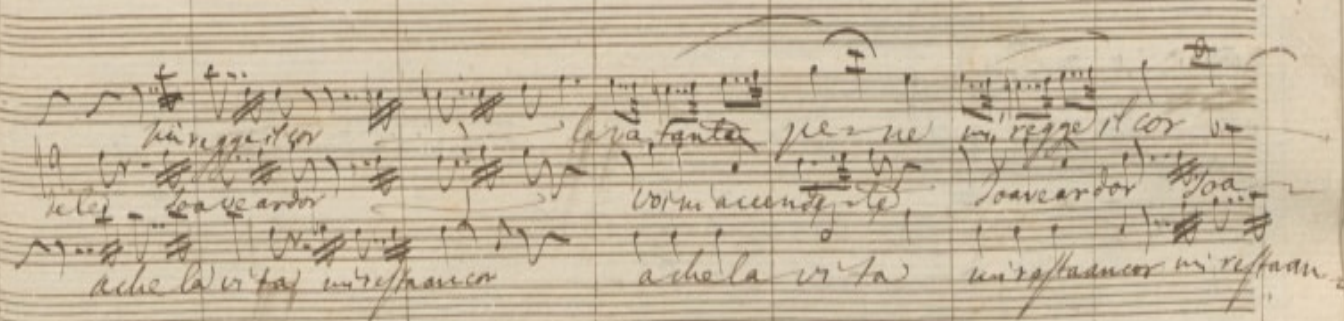 mi regge il cor la tanta pene mi regge il cor
soave ardor voi mi accendete soave ardor soa
a che la vita mi resta ancor a che la vita mi resta ancor mi resta an